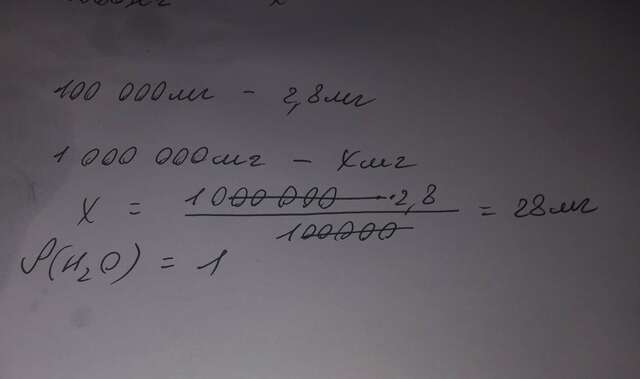 100 000 мг - 2,8 мг
1 000 000 мг - X мг
X = 1 000 000 · 2,8 / 100000 = 28 мг
ρ(H₂O) = 1